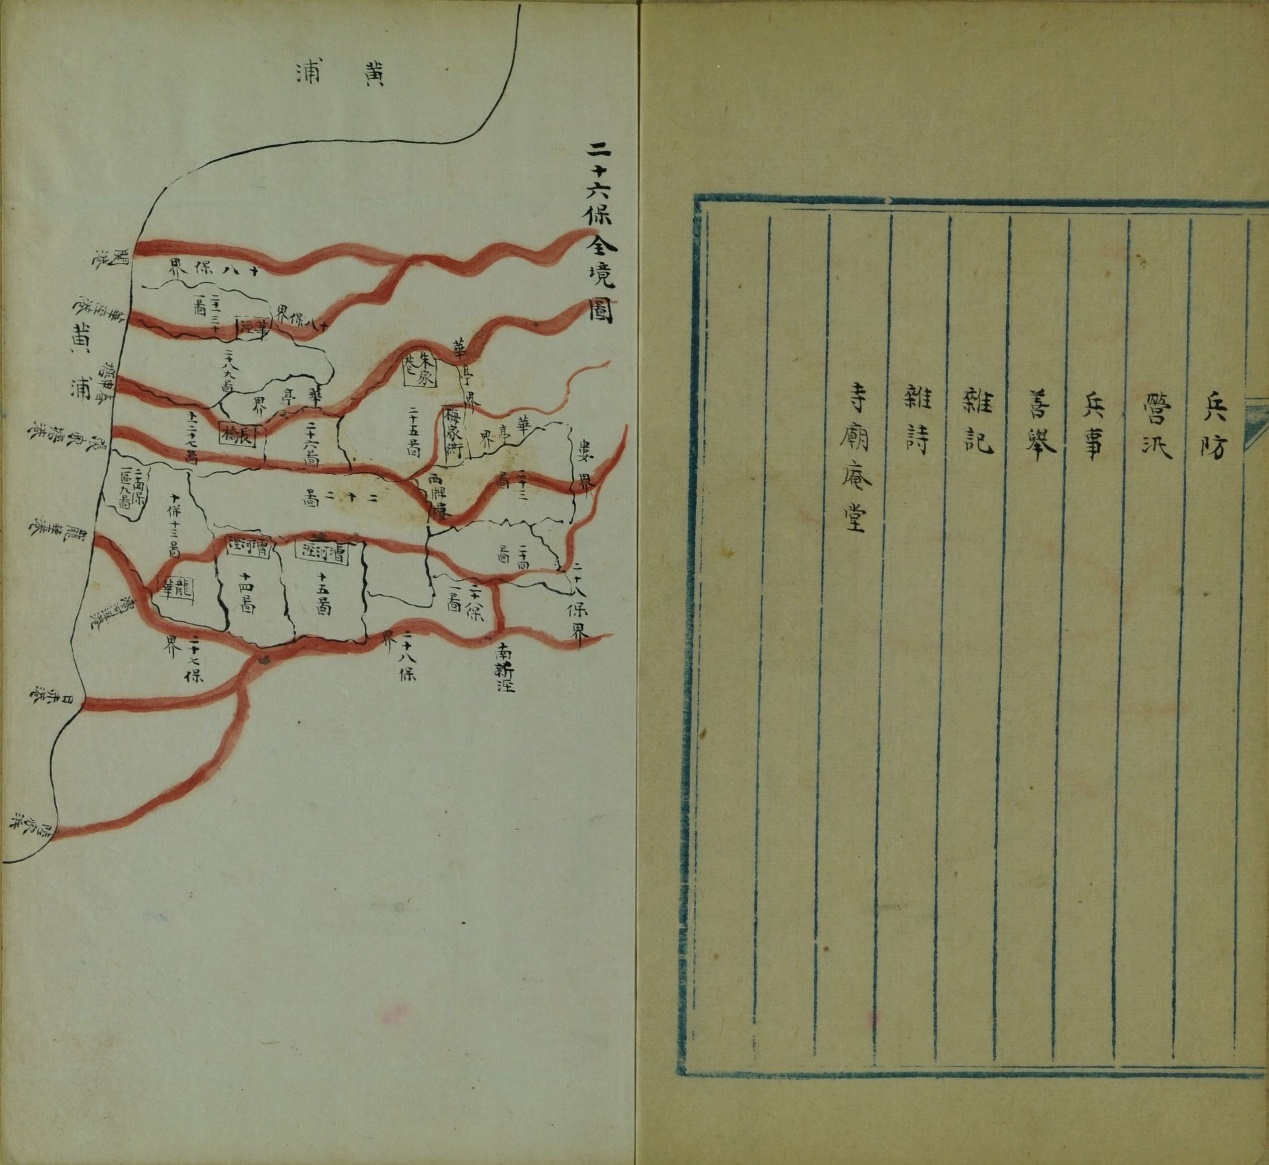 兵防
營汛
兵事
善舉
雜記
雜詩
寺廟庵堂
二十六保全境圖
黃浦
十八保界
十八保界
華涇
二十八九圖
華亭界
長橋
二十六圖
二十五圖
朱家巷
華亭界
梅家衖
華亭界
婁界
二十三圖
二十二圖
黃浦
二十四圖
十保十三圖
龍華
漕河涇
漕河涇
十四圖
十五圖
二十八保一圖
二十八保界
南新涇
二十八保界
二十七保界
龍華港